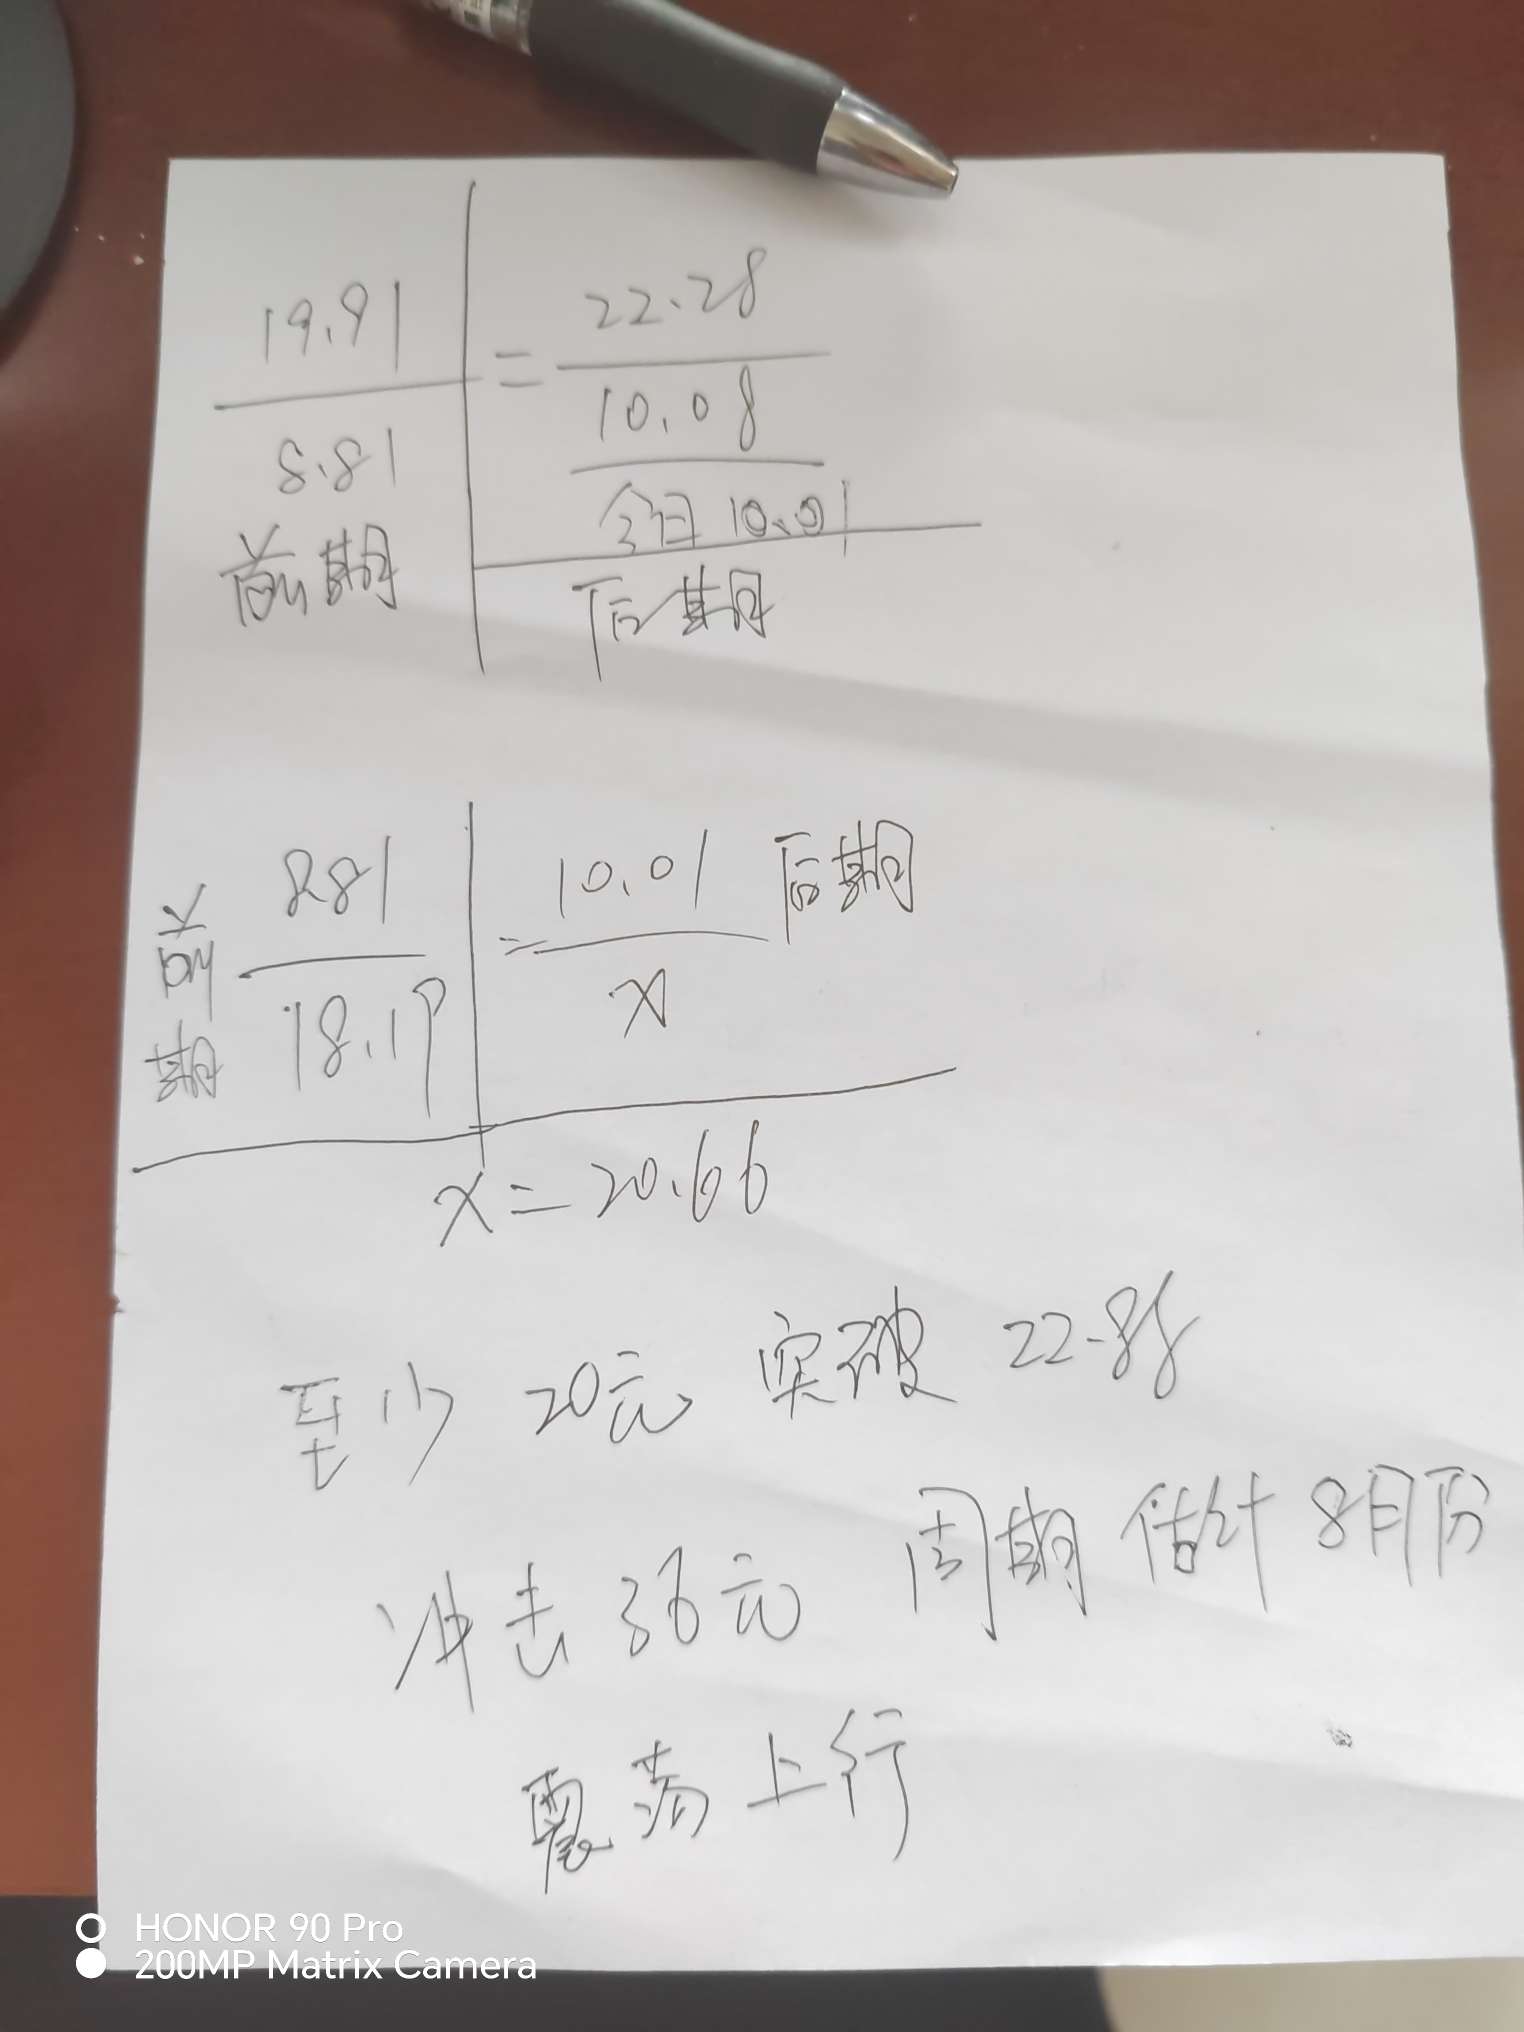 19.91 = 22.28
8.81 10.08
今日 10.01
前期 后期
前期 8.81 = 10.01 后期
18.19 x
x = 20.66
至少 20元 突破 22.88
冲击 36元 周期 估计 8月份
震荡上行
HONOR 90 Pro
200MP Matrix Camera